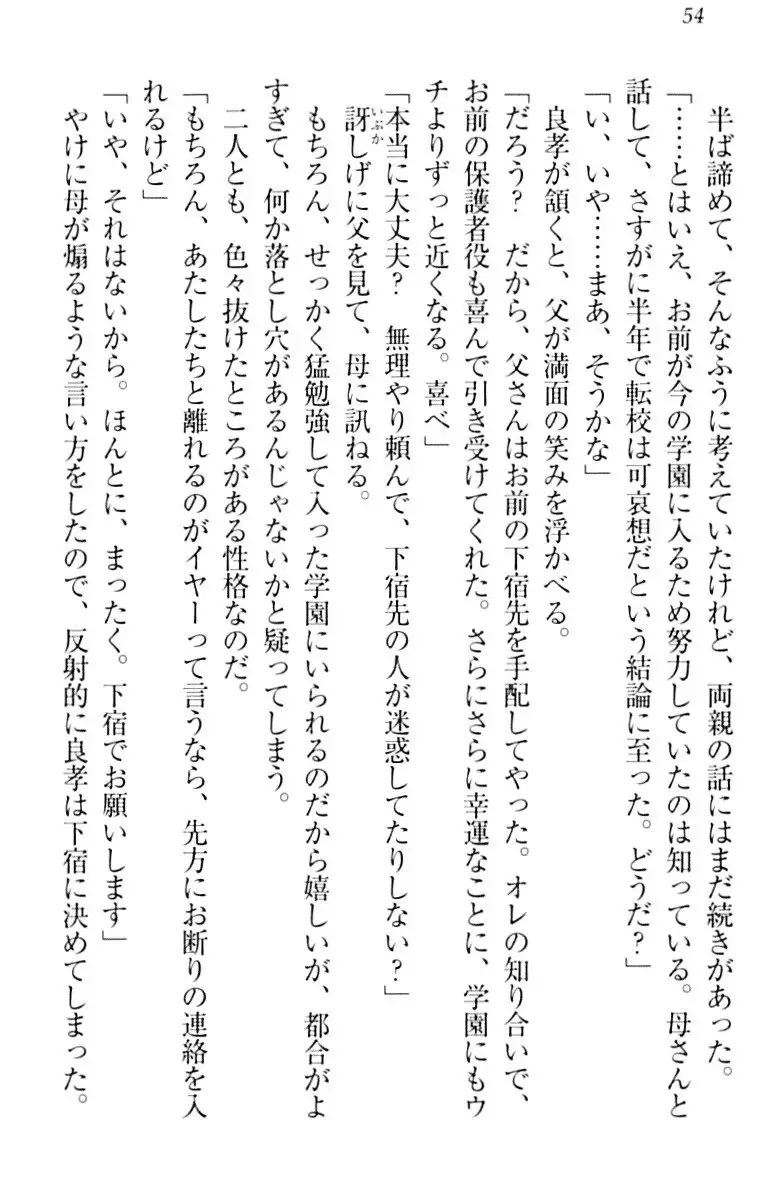 54
半ば諦めて、そんなふうに考えていたけれど、両親の話にはまだ続きがあった。
「……とはいえ、お前が今の学園に入るため努力していたのは知っている。母さんと
話して、さすがに半年で転校は可哀想だという結論に至った。どうだ？」
「い、いや……まあ、そうかな」
良孝が頷くと、父が満面の笑みを浮かべる。
「だろう？　だから、父さんはお前の下宿先を手配してやった。オレの知り合いで、
お前の保護者役も喜んで引き受けてくれた。さらにさらに幸運なことに、学園にもウ
チよりずっと近くなる。喜べ」
「本当に大丈夫？　無理やり頼んで、下宿先の人が迷惑してたりしない？」
訝しげに父を見て、母に訊ねる。
いぶか
もちろん、せっかく猛勉強して入った学園にいられるのだから嬉しいが、都合がよ
すぎて、何か落とし穴があるんじゃないかと疑ってしまう。
二人とも、色々抜けたところがある性格なのだ。
「もちろん、あたしたちと離れるのがイヤーって言うなら、先方にお断りの連絡を入
れるけど」
「いや、それはないから。ほんとに、まったく。下宿でお願いします」
やけに母が煽るような言い方をしたので、反射的に良孝は下宿に決めてしまった。